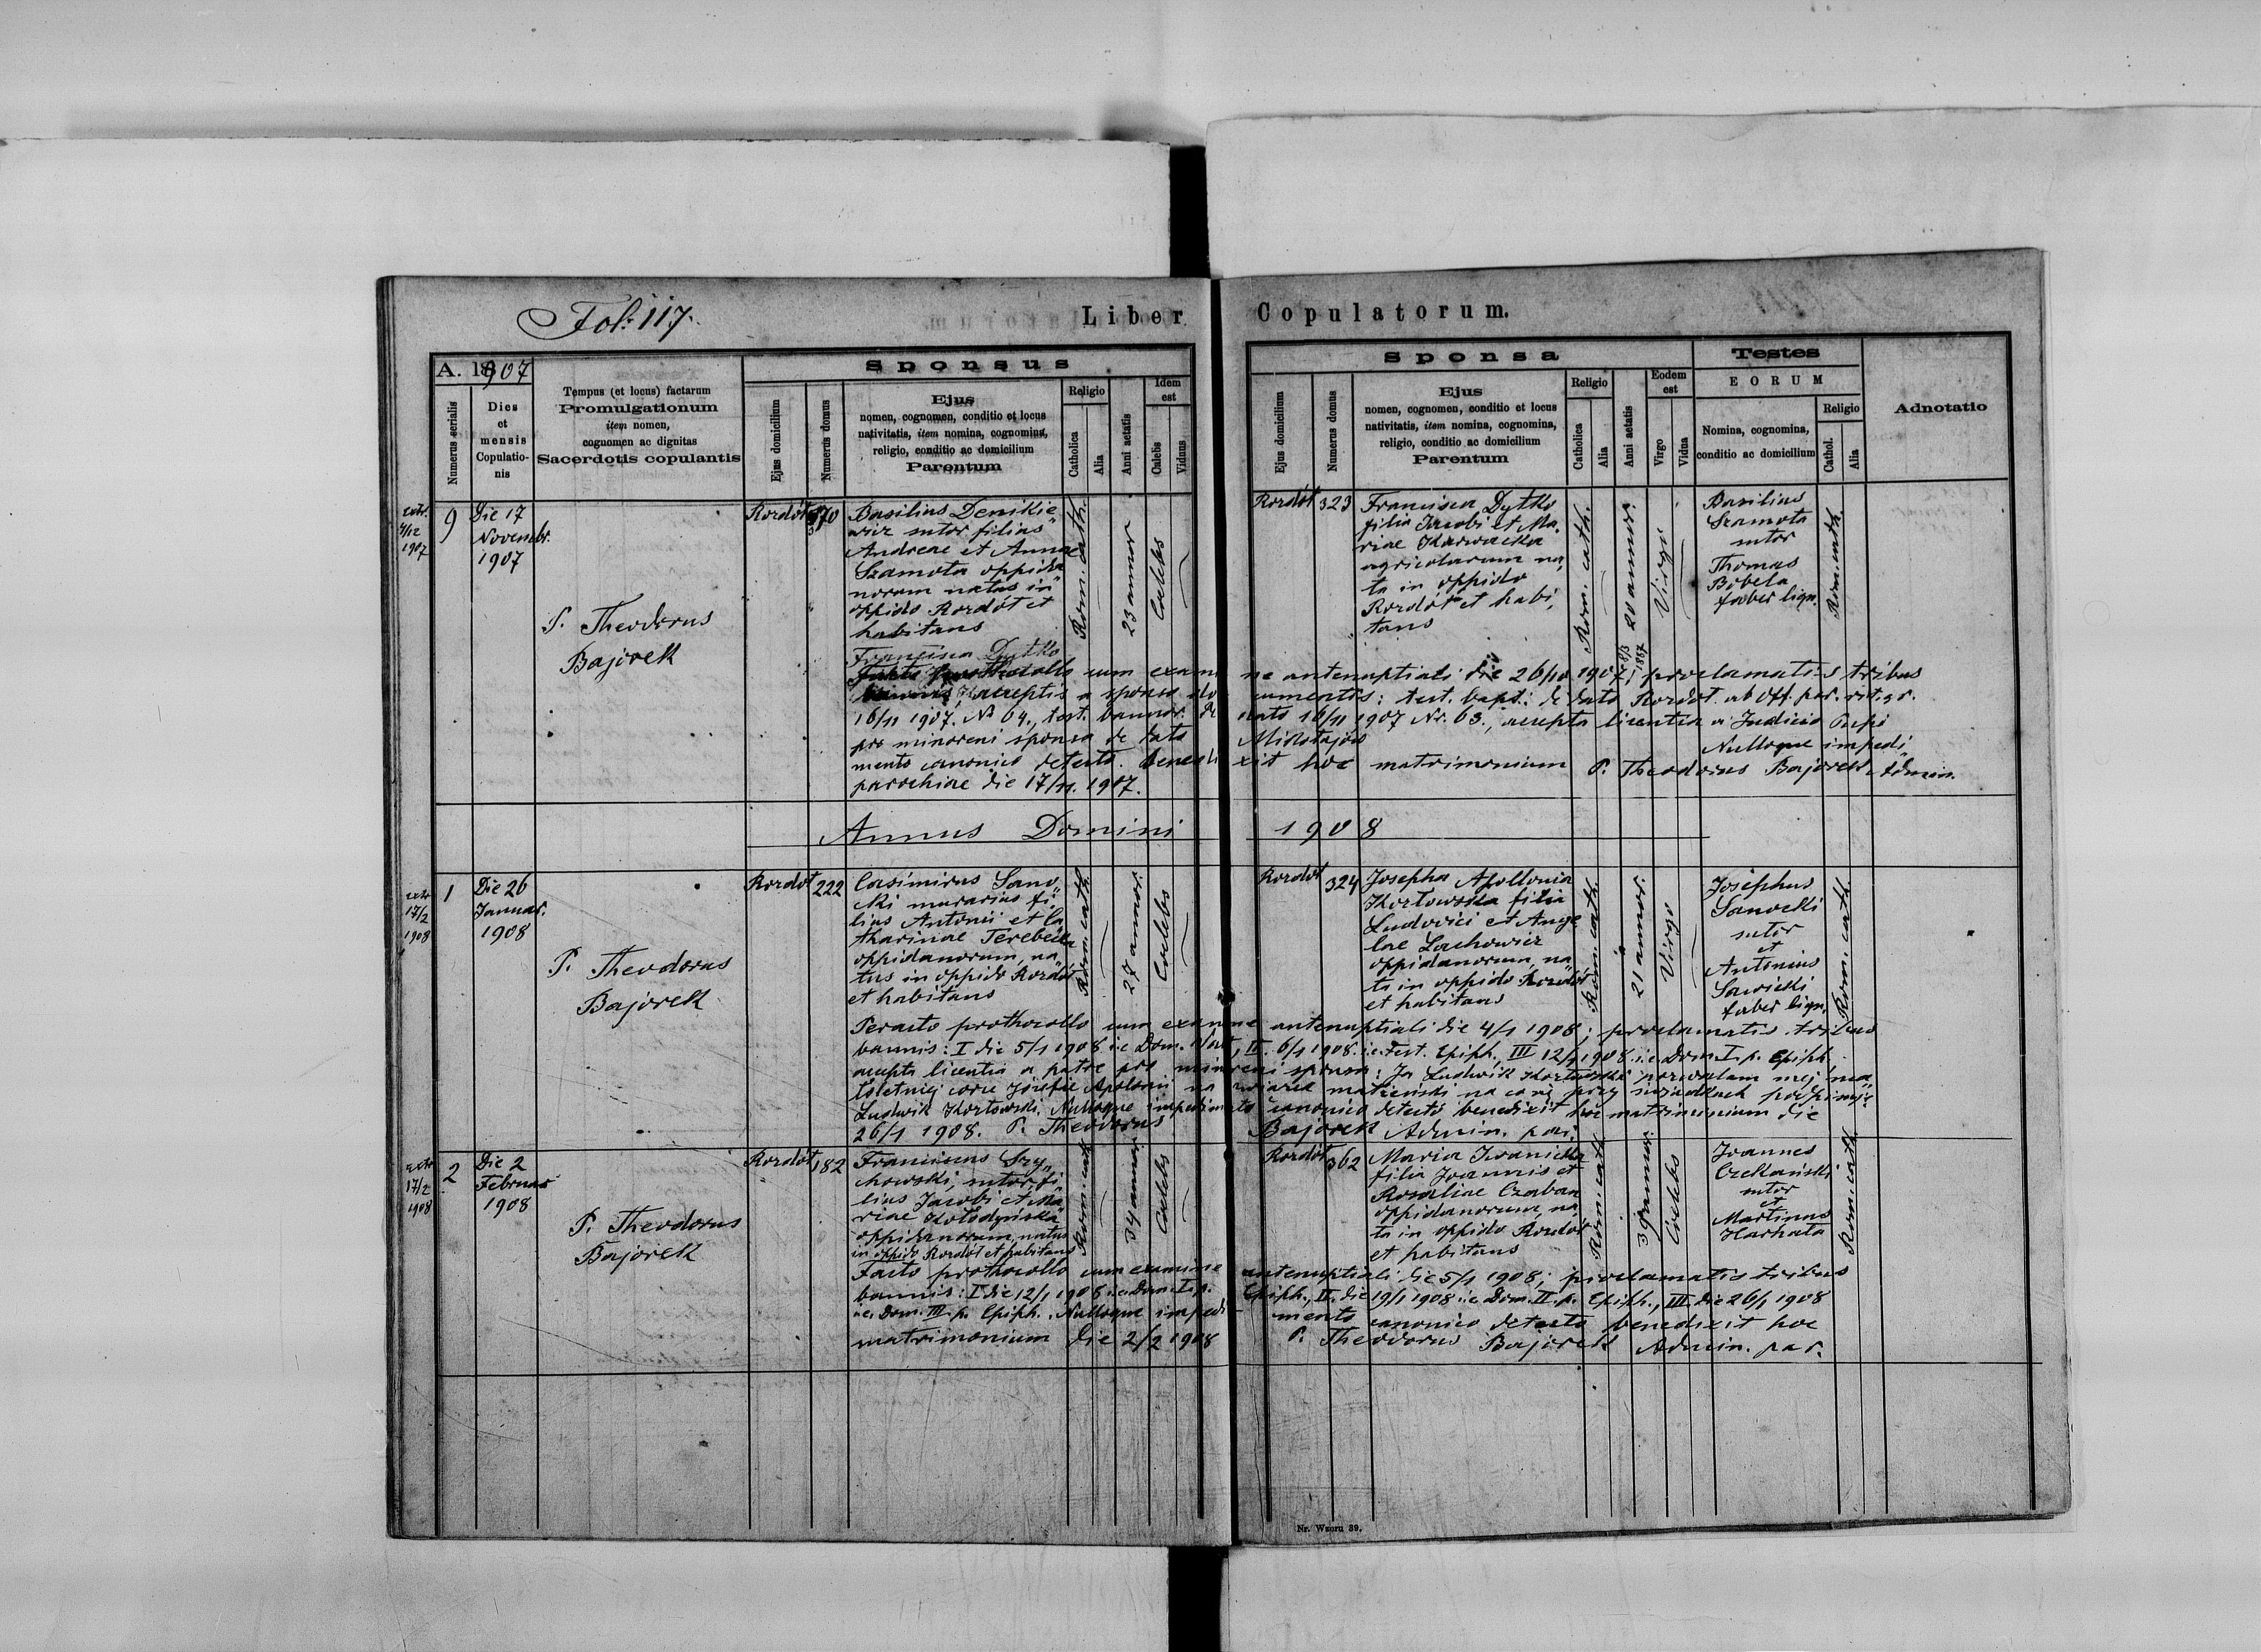 Fol: 117.
Liber Copulatorum.
A. 1907
Numerus serialis
Dies et mensis Copulatio-nis
Tempus (et locus) factarum
Promulgationum
item nomen,
cognomen ac dignitas
Sacerdotis copulantis
Sponsus
Ejus domicilium
Numerus domus
Ejus
nomen, cognomen, conditio et locus
nativitatis, item nomina, cognomina,
religio, conditio ac domicilium
Parentum
Religio
Catholica
Alia
Anni aetatis
Idem est
Calebs
Viduus
Sponsa
Ejus domicilium
Numerus domus
Ejus
nomen, cognomen, conditio et locus
nativitatis, item nomina, cognomina,
religio, conditio ac domicilium
Parentum
Religio
Catholica
Alia
Anni aetatis
Eodem est
Virgo
Vidua
Testes
EORUM
Nomina, cognomina,
conditio ac domicilium
Religio
Cathol.
Alia
Adnotatio
extr.
4/12
1907
9
Die 17
Novembr.
1907
P. Theodorus
Bajorek
Rozdół
Basilius Denikie„
wicz sutor filius
Andreae et Annae
Szamota oppida„
norum natus in
oppido Rozdół et
habitans
Rom. cath.
23 annor
Caelebs
Rozdół 323
Francisca Dytko
filia Jacobi et Ma„
riae Karwacka
agricolarum na„
ta in oppido
Rozdół et habi„
tans
Rom. cath.
20 annor.
8/3
1887
Virgo
Basilius
Szamota
sutor
Thomas
Bobela
faber lign.
Rom. cath.
Francisca Dytko
prothocollo cum examine antenuptiali die 26/10 1907; proclamatis tribus
acceptis a sponso documentis: test. bapt. de dato Rozdół ab Off. par. rit. gr.
16/11 1907. No 64., test. bannor. de dato 16/11 1907 Nr. 63., accepta licentia a Judicio Pupi
pro minoreni sponsa de dato Mikołajów Nulloque impedi„
mento canonico detecto. benedixit hoc matrimonium P. Theodorus Bajorek Admin.
parochiae die 17/11. 1907.
Annus Domini 1908
extr
17/2
1908
1
Die 26
Januar.
1908
P. Theodorus
Bajorek
Rozdół 222
Casimirus Sano„
cki murarius fi„
lius Antonii et Ca„
tharinae Terebecka
oppidanorum, na„
tus in oppido Rozdół
et habitans
Rom. cath.
27 annor.
Caelebs
Rozdół 324
Josepha Apollonia
Kozłowska filia
Ludovici et Ange„
lae Lachowicz
oppidanorum, na„
ta in oppido Rozdół
et habitans
Rom. cath.
21 annor.
Virgo
Josephus
Sanocki
sutor
et
Antonius
Sawicki
faber lign.
Rom. cath.
Peracto prothocollo cum examine antenuptiali die 4/1 1908; proclamatis tribus
bannis: I die 5/1 1908 i.e. Dom. II. 6/1 1908. i.e. Fest. Epiph., III 12/1 1908. i.e. Dom. I. p. Epiph.
accepta licentia a patre pro minoreni sponsa: Ja Ludwik Kozłowski pozwalam mej ma„
łoletniej córce Józefie Apolonii na zawarcie małżeński na co się przy świadkach podpisuję:
Ludwik Kozłowski. Nulloque impedimento canonico detecto benedixit hoc matrimonium die
26/1 1908. P. Theodorus Bajorek Admin. par.
extr
17/2
1908
2
Die 2
Februar
1908
P. Theodorus
Bajorek
Rozdół 182
Franciscus Szy„
chowski, sutor, fi„
lius Jacobi et Ma„
riae Kołodyńska
oppidanorum, natus
in oppido Rozdół et habitans
Rom. cath
34 annor.
Caelebs
Rozdół 362
Maria Iwanicka
filia Joannis et
Rosaliae Czaban
oppidanorum, na„
ta in oppido Rozdół
et habitans
Rom. cath
annor.
Caelebs
Joannes
Czekański
sutor
et
Martinus
Harhala
Rom. cath.
Facto prothocollo cum examine antenuptiali die 5/1 1908; proclamatis tribus
bannis: I die 12/1 1908 i.e. Dom. I. p. Epiph., II. die 19/1 1908 i.e. Dom. II. p. Epiph., III. die 26/1 1908
i.e. Dom. III. p. Epiph. Nulloque impedi mento canonico detecto benedixit hoc
matrimonium die 2/2 1908 P. Theodorus Bajorek Admin. par.
Nr. Wzoru 39.